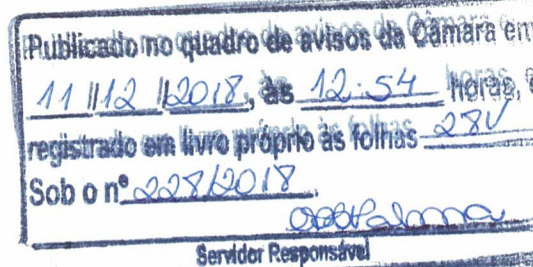 Publicado no quadro de avisos da Câmara em
11/12/2018, às 12:54 horas, e
registrado em livro próprio às folhas 28V
Sob o nº 228/2018.
Servidor Responsável